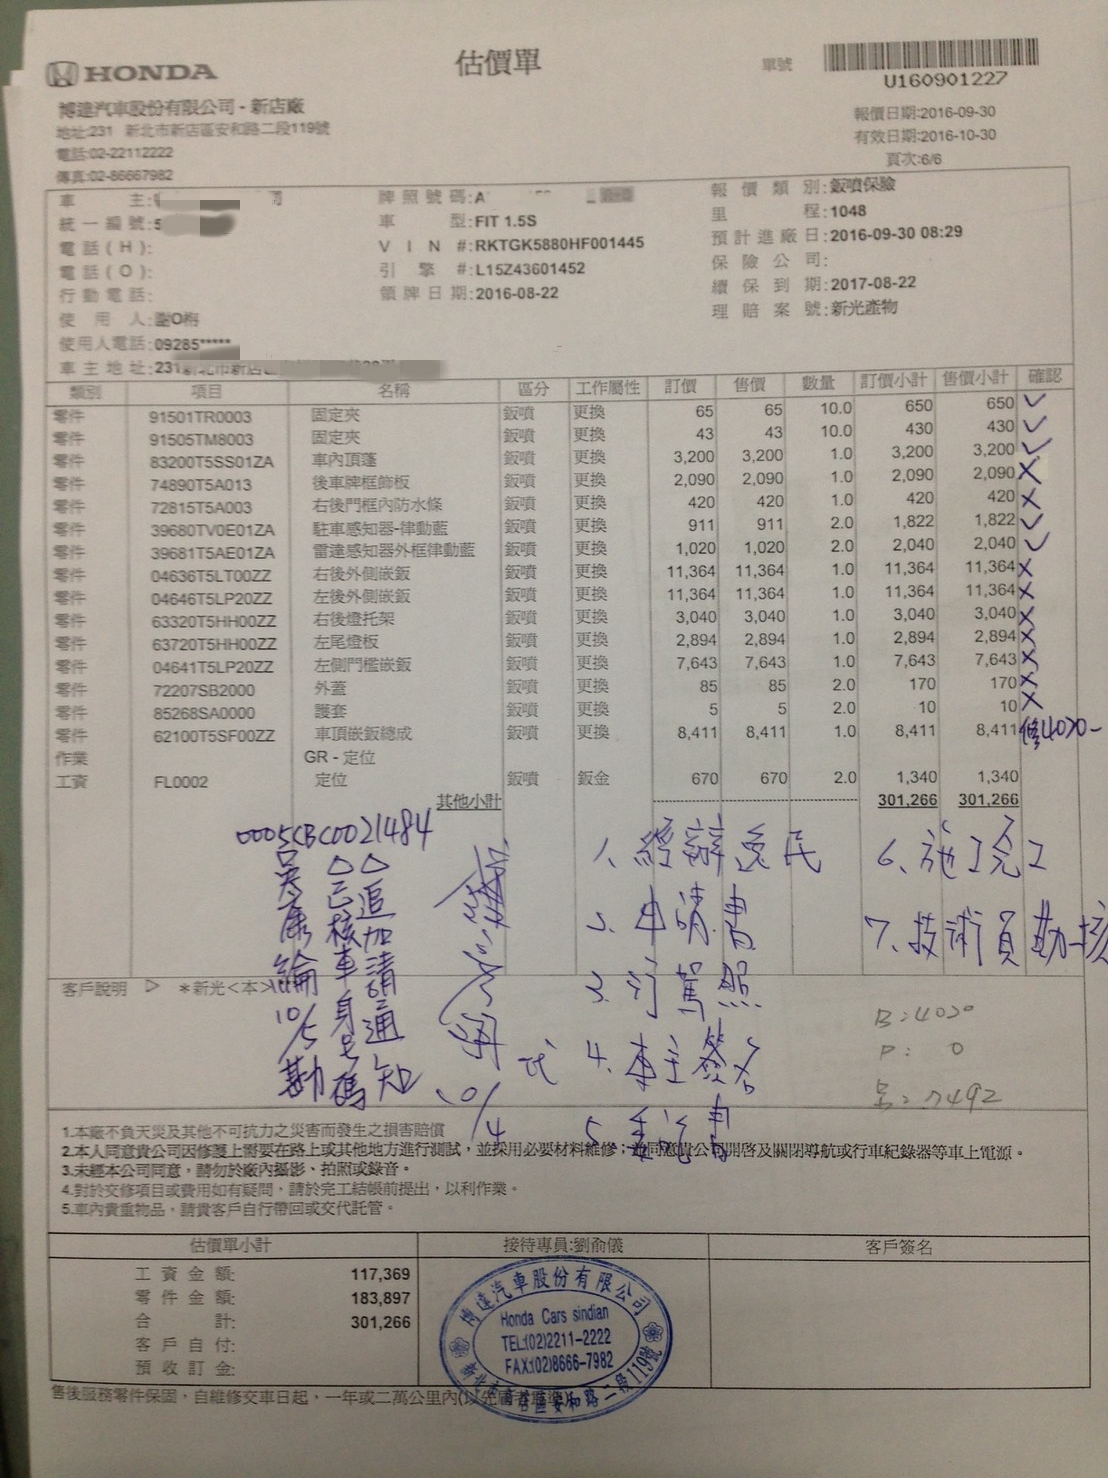 HONDA
估價單
單號
U160901227
博達汽車股份有限公司 - 新店廠
地址:231 新北市新店區安和路二段119號
電話:02-22112222
傳真:02-86667982
報價日期:2016-09-30
有效日期:2016-10-30
頁次:6/6
車主: 牌照號碼:A 報價類別:鈑噴保險
統一編號:5 車型:FIT 1.5S 里程:1048
電話(H): VIN #:RKTGK5880HF001445 預計進廠日:2016-09-30 08:29
電話(O): 引擎 #:L15Z43601452 保險公司:
行動電話: 領牌日期:2016-08-22 續保到期:2017-08-22
使用人: 理賠案號:新光產物
使用人電話:09285*****
車主地址:231新北市新店區
類別 項目 名稱 區分 工作屬性 訂價 售價 數量 訂價小計 售價小計 確認
零件 91501TR0003 固定夾 鈑噴 更換 65 65 10.0 650 650 ✓
零件 91505TM8003 固定夾 鈑噴 更換 43 43 10.0 430 430 ✓
零件 83200T5SS01ZA 車內頂蓬 鈑噴 更換 3,200 3,200 1.0 3,200 3,200 ✓
零件 74890T5A013 後車牌框飾板 鈑噴 更換 2,090 2,090 1.0 2,090 2,090 X
零件 72815T5A003 右後門框內防水條 鈑噴 更換 420 420 1.0 420 420 X
零件 39680TV0E01ZA 駐車感知器-律動藍 鈑噴 更換 911 911 2.0 1,822 1,822 ✓
零件 39681T5AE01ZA 雷達感知器外框律動藍 鈑噴 更換 1,020 1,020 2.0 2,040 2,040 ✓
零件 04636T5LT00ZZ 右後外側嵌鈑 鈑噴 更換 11,364 11,364 1.0 11,364 11,364 X
零件 04646T5LP20ZZ 左後外側嵌鈑 鈑噴 更換 11,364 11,364 1.0 11,364 11,364 X
零件 63320T5HH00ZZ 右後燈托架 鈑噴 更換 3,040 3,040 1.0 3,040 3,040 X
零件 63720T5HH00ZZ 左尾燈板 鈑噴 更換 2,894 2,894 1.0 2,894 2,894 X
零件 04641T5LP20ZZ 左側門檻嵌鈑 鈑噴 更換 7,643 7,643 1.0 7,643 7,643 X
零件 72207SB2000 外蓋 鈑噴 更換 85 85 2.0 170 170 X
零件 85268SA0000 護套 鈑噴 更換 5 5 2.0 10 10 X
零件 62100T5SF00ZZ 車頂嵌鈑總成 鈑噴 更換 8,411 8,411 1.0 8,411 8,411 修4020-
作業 GR - 定位
工資 FL0002 定位 鈑噴 鈑金 670 670 2.0 1,340 1,340
其他小計 301,266 301,266
0005CBC0021484
△△追加請通知
已核車身號碼
10/5勘
10/4
代
1、經辦逸民
2、申請書
3、行駕照
4、車主簽名
6、施工完工
7、技術員勘核
客戶說明 ▷ *新光<本>
B:4020
P: 0
1.本廠不負天災及其他不可抗力之災害而發生之損害賠償
2.本人同意貴公司因修護上需要在路上或其他地方進行測試，並採用必要材料維修；並同意貴公司開啓及關閉導航或行車紀錄器等車上電源。
3.未經本公司同意，請勿於廠內攝影、拍照或錄音。
4.對於交修項目或費用如有疑問，請於完工結帳前提出，以利作業。
5.車內貴重物品，請貴客戶自行帶回或交代託管。
估價單小計 接待專員:劉俞儀 客戶簽名
工資金額: 117,369
零件金額: 183,897
合計: 301,266
客戶自付:
預收訂金:
博達汽車股份有限公司
Honda Cars sindian
TEL:(02)2211-2222
FAX:(02)8666-7982
新北市新店區安和路二段119號
售後服務零件保固，自維修交車日起，一年或二萬公里內(以先屆者為準)